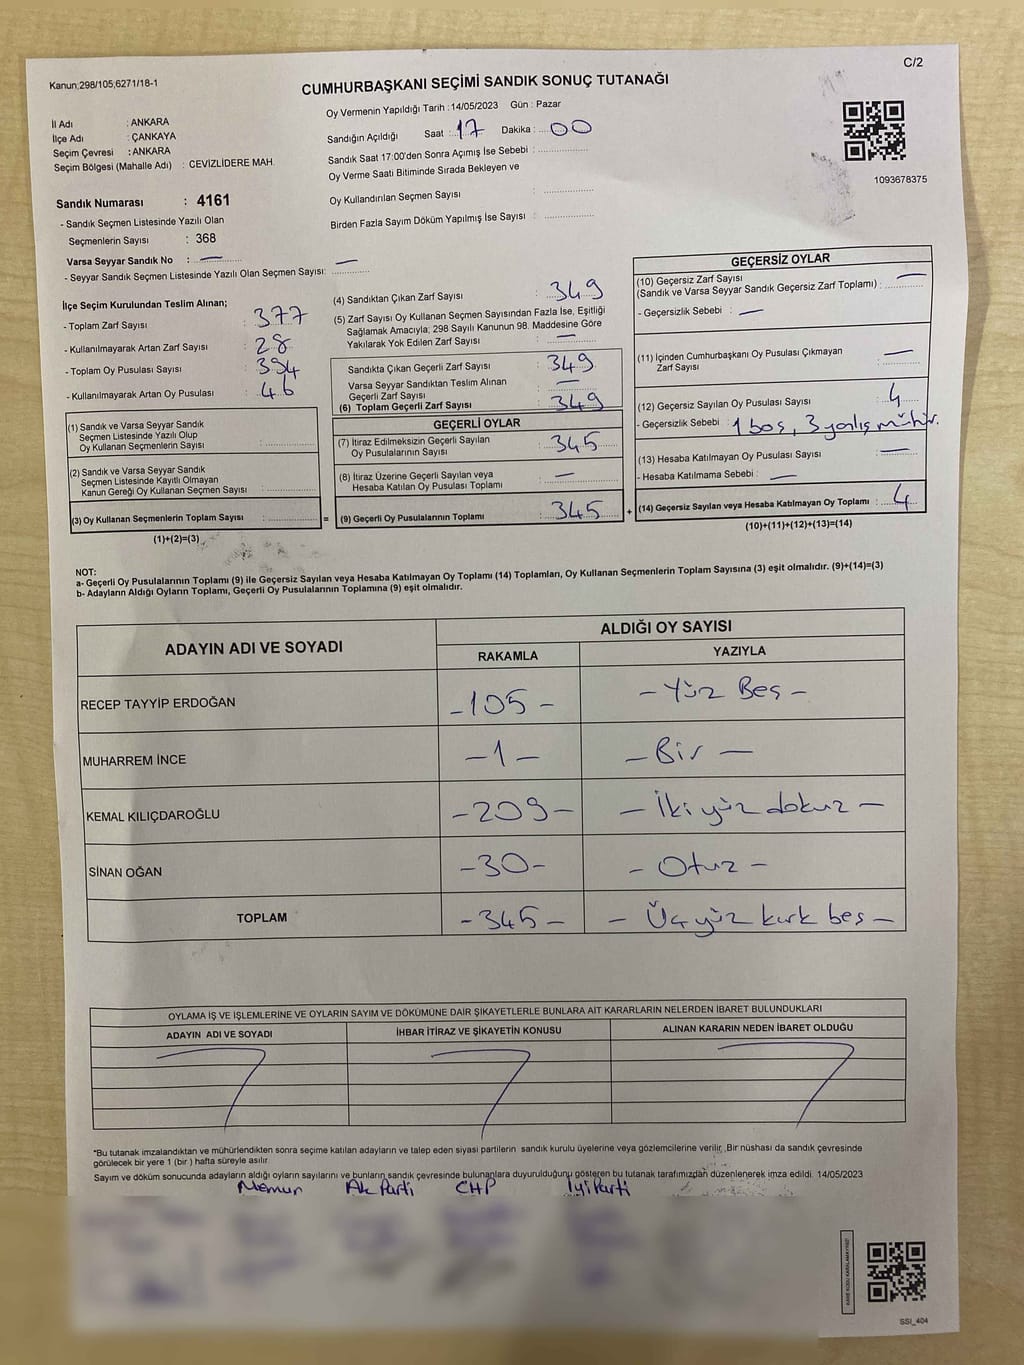 Kanun;298/105;6271/18-1
C/2
CUMHURBAŞKANI SEÇİMİ SANDIK SONUÇ TUTANAĞI
İl Adı : ANKARA
İlçe Adı : ÇANKAYA
Seçim Çevresi : ANKARA
Seçim Bölgesi (Mahalle Adı) : CEVİZLİDERE MAH.
Sandık Numarası : 4161
- Sandık Seçmen Listesinde Yazılı Olan
Seçmenlerin Sayısı : 368
Varsa Seyyar Sandık No : —
- Seyyar Sandık Seçmen Listesinde Yazılı Olan Seçmen Sayısı: —
Oy Vermenin Yapıldığı Tarih : 14/05/2023 Gün : Pazar
Sandığın Açıldığı Saat : 17 Dakika : 00
Sandık Saat 17:00'den Sonra Açımış İse Sebebi :
Oy Verme Saati Bitiminde Sırada Bekleyen ve
Oy Kullandırılan Seçmen Sayısı :
Birden Fazla Sayım Döküm Yapılmış İse Sayısı :
1093678375
İlçe Seçim Kurulundan Teslim Alınan;
- Toplam Zarf Sayısı : 377
- Kullanılmayarak Artan Zarf Sayısı : 28
- Toplam Oy Pusulası Sayısı : 394
- Kullanılmayarak Artan Oy Pusulası : 46
(1) Sandık ve Varsa Seyyar Sandık
Seçmen Listesinde Yazılı Olup
Oy Kullanan Seçmenlerin Sayısı :
(2) Sandık ve Varsa Seyyar Sandık
Seçmen Listesinde Kayıtlı Olmayan
Kanun Gereği Oy Kullanan Seçmen Sayısı :
(3) Oy Kullanan Seçmenlerin Toplam Sayısı :
(1)+(2)=(3)
(4) Sandıktan Çıkan Zarf Sayısı : 349
(5) Zarf Sayısı Oy Kullanan Seçmen Sayısından Fazla İse, Eşitliği
Sağlamak Amacıyla; 298 Sayılı Kanunun 98. Maddesine Göre
Yakılarak Yok Edilen Zarf Sayısı : —
Sandıkta Çıkan Geçerli Zarf Sayısı : 349
Varsa Seyyar Sandıktan Teslim Alınan
Geçerli Zarf Sayısı : —
(6) Toplam Geçerli Zarf Sayısı : 349
GEÇERLİ OYLAR
(7) İtiraz Edilmeksizin Geçerli Sayılan
Oy Pusulalarının Sayısı : 345
(8) İtiraz Üzerine Geçerli Sayılan veya
Hesaba Katılan Oy Pusulası Toplamı : —
= (9) Geçerli Oy Pusulalarının Toplamı : 345 +
GEÇERSİZ OYLAR
(10) Geçersiz Zarf Sayısı
(Sandık ve Varsa Seyyar Sandık Geçersiz Zarf Toplamı) : —
- Geçersizlik Sebebi : —
(11) İçinden Cumhurbaşkanı Oy Pusulası Çıkmayan
Zarf Sayısı : —
(12) Geçersiz Sayılan Oy Pusulası Sayısı : 4
- Geçersizlik Sebebi : 1 boş, 3 yanlış mühür.
(13) Hesaba Katılmayan Oy Pusulası Sayısı : —
- Hesaba Katılmama Sebebi : —
(14) Geçersiz Sayılan veya Hesaba Katılmayan Oy Toplamı : 4
(10)+(11)+(12)+(13)=(14)
NOT:
a- Geçerli Oy Pusulalarının Toplamı (9) ile Geçersiz Sayılan veya Hesaba Katılmayan Oy Toplamı (14) Toplamları, Oy Kullanan Seçmenlerin Toplam Sayısına (3) eşit olmalıdır. (9)+(14)=(3)
b- Adayların Aldığı Oyların Toplamı, Geçerli Oy Pusulalarının Toplamına (9) eşit olmalıdır.
ADAYIN ADI VE SOYADI
ALDIĞI OY SAYISI
RAKAMLA YAZIYLA
RECEP TAYYİP ERDOĞAN - 105 - - Yüz Beş -
MUHARREM İNCE - 1 - - Bir -
KEMAL KILIÇDAROĞLU - 209 - - İki yüz dokuz -
SİNAN OĞAN - 30 - - Otuz -
TOPLAM - 345 - - Üç yüz kırk beş -
OYLAMA İŞ VE İŞLEMLERİNE VE OYLARIN SAYIM VE DÖKÜMÜNE DAİR ŞİKAYETLERLE BUNLARA AİT KARARLARIN NELERDEN İBARET BULUNDUKLARI
ADAYIN ADI VE SOYADI İHBAR İTİRAZ VE ŞİKAYETİN KONUSU ALINAN KARARIN NEDEN İBARET OLDUĞU
*Bu tutanak imzalandıktan ve mühürlendikten sonra seçime katılan adayların ve talep eden siyasi partilerin sandık kurulu üyelerine veya gözlemcilerine verilir, Bir nüshası da sandık çevresinde
görülecek bir yere 1 (bir ) hafta süreyle asılır.
Sayım ve döküm sonucunda adayların aldığı oyların sayılarını ve bunların sandık çevresinde bulunanlara duyurulduğunu gösteren bu tutanak tarafımızdan düzenlenerek imza edildi. 14/05/2023
Memur Ak Parti CHP İyi Parti
SSİ_404